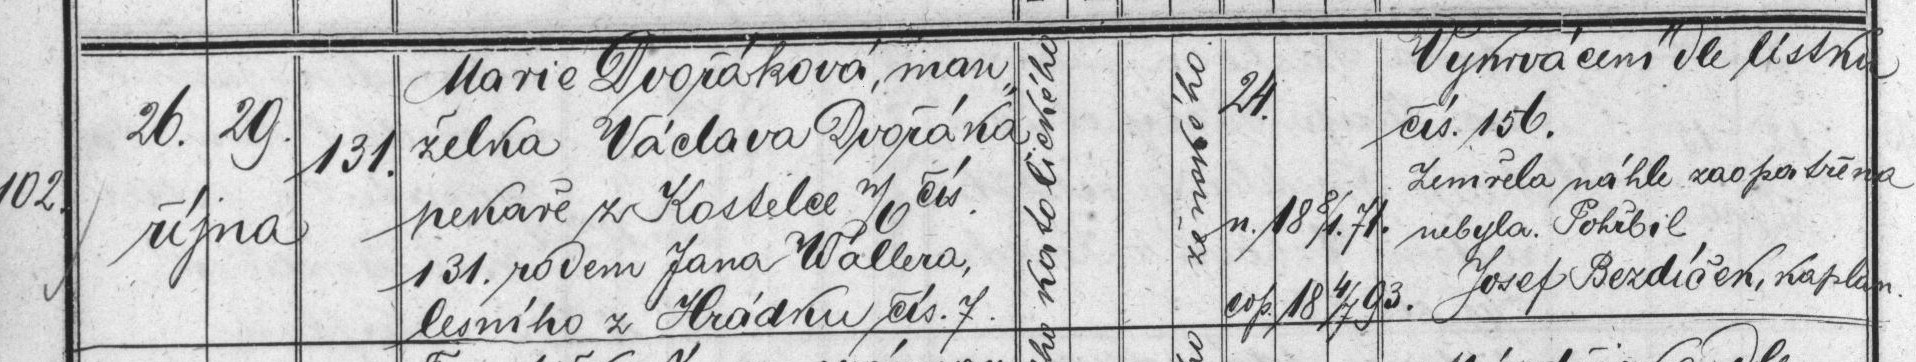 Marie Dvořáková, man„
26. 29. 131. želka Václava Dvořáka
102. října pekaře z Kostelce n/O čís.
131. rodem Jana Wállera,
lesního z Hrádku čís. 7.
ho katolického
ho ženského.
24.
n. 18 8/1. 71.
cop. 18 4/7 93.
Vykrvácení dle lístku
čís. 156.
Zemřela náhle zaopatřena
nebyla. Pohřbil
Josef Bezdíček, kaplan.